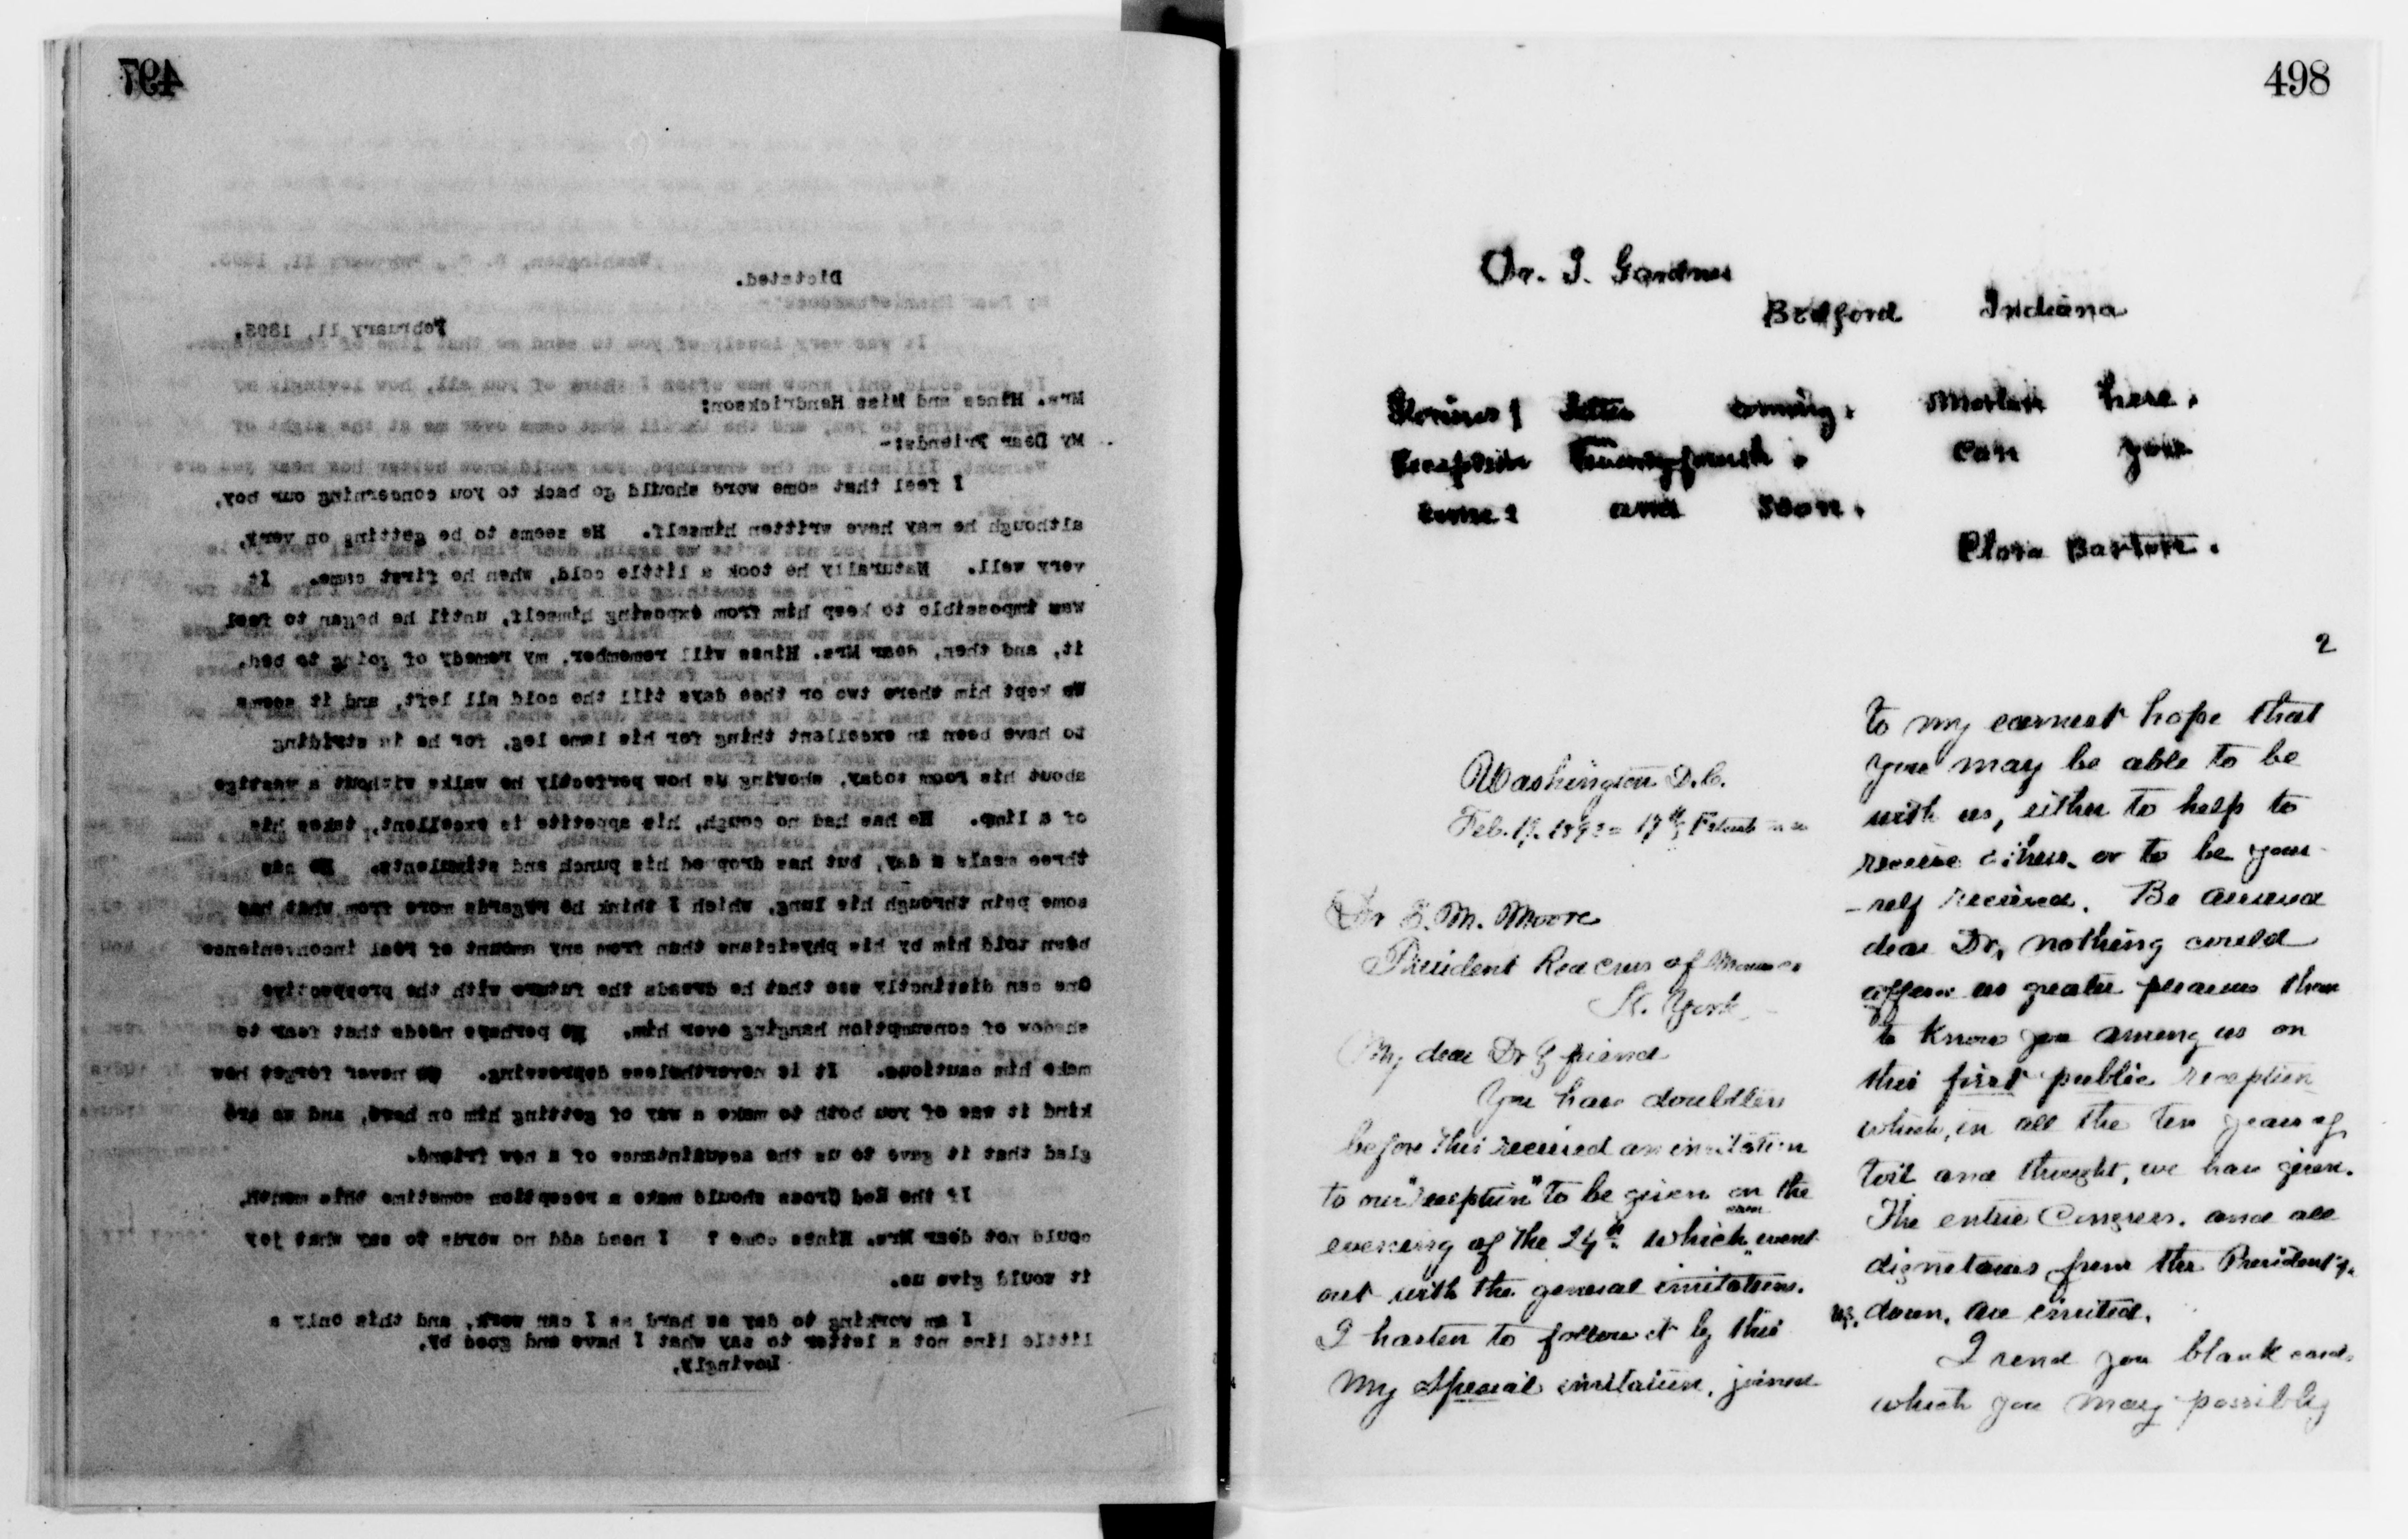 497
Dictated.
February 11, 1893.
Mrs. Hines and Miss Hendrickson:
My Dear Friends:-
I feel that some word should go back to you concerning our boy,
although he may have written himself. He seems to be getting on very,
very well. Naturally he took a little cold, when he first came. It
was impossible to keep him from exposing himself, until he began to feel
it, and then, dear Mrs. Hines will remember, my remedy of going to bed.
We kept him there two or thee days till the cold all left, and it seems
to have been an excellent thing for his lame leg, for he is striding
about his room today, showing us how perfectly he walks without a vestige
of a limp. He has had no cough, his appetite is excellent, takes his
three meals a day, but has dropped his punch and stimulents. He has
some pain through his lung, which I think he regards more from what has
been told him by his physicians than from any amount of real inconvenience
One can distinctly see that he dreads the future with the prospective
shadow of consumption hanging over him. He perhaps needs that fear to
make him cautious. It is nevertheless depressing. We never forget how
kind it was of you both to make a way of getting him on here, and we are
glad that it gave to us the acquaintance of a new friend.
If the Red Cross should make a reception sometime this month,
could not dear Mrs. Hines come ? I need add no words to say what joy
it would give us.
I am working to day as hard as I can work, and this only a
little line not a letter to say what I have and good by,
Lovingly,
498
Dr. J. Gardner
Bedford Indiana
letter coming. Morlan here.
Reception Twenty fourth. Can you
come? and soon.
Clara Barton.
Washington D.C.
Feb. 17. 1893
Dr E. M. Moore
President Red Cross of
N. York
My dear Dr & friend
You have doubtless
before this received an invitation
to our "reception" to be given on the
evening of the 24th. which went
out with the general invitations.
I hasten to follow it by this
my special invitation, joined
2
to my earnest hope that
you may be able to be
with us, either to help to
receive others, or to be your
-self received. Be assured
dear Dr, nothing could
afford us greater pleasure than
to know you among us on
this first public reception
which, in all the ten years of
toil and thought, we have given.
The entire Congress, and all
dignitaries from the President
down, are invited.
I send you blank cards
which you may possibly